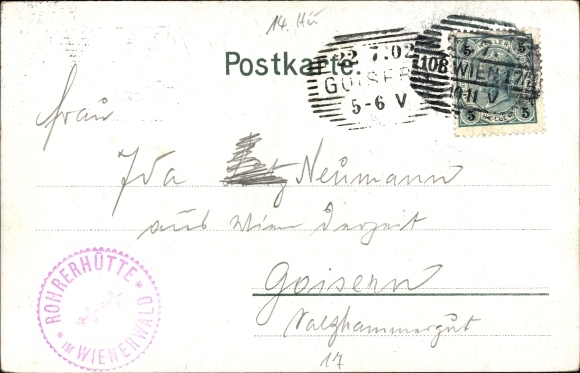 14. Hü
Postkarte
22.7.02
GOISERN
5-6 V
108 WIEN 17
10-11 V
5 5
5 5
Frau
Ida Neumann
aus Wien derzeit
Goisern
Salzkammergut
17
* ROHRERHÜTTE *
IM WIENERWALD